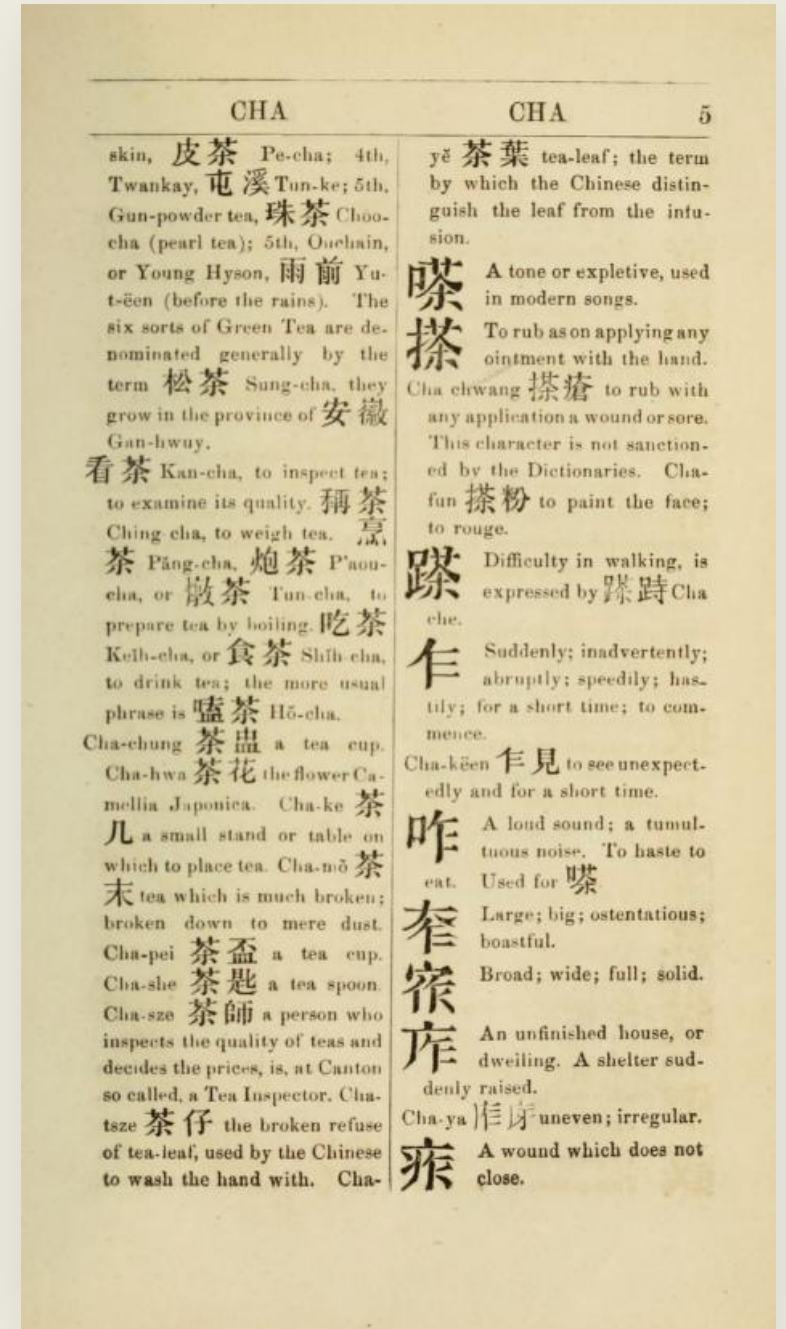 CHA CHA 5
skin, 皮茶 Pe-cha; 4th,
Twankay, 屯溪 Tun-ke; 5th,
Gun-powder tea, 珠茶 Choo-
cha (pearl tea); 5th, Ouchain,
or Young Hyson, 雨前 Yu-
t-ëen (before the rains). The
six sorts of Green Tea are de-
nominated generally by the
term 松茶 Sung-cha, they
grow in the province of 安徽
Gan-hwuy.
看茶 Kan-cha, to inspect tea;
to examine its quality. 稱茶
Ching cha, to weigh tea. 烹
茶 Păng-cha, 炮茶 P'aou-
cha, or 燉茶 Tun-cha, to
prepare tea by boiling. 吃茶
Keĭh-cha, or 食茶 Shĭh cha,
to drink tea; the more usual
phrase is 嗑茶 Hŏ-cha.
Cha-chung 茶盅 a tea cup.
Cha-hwa 茶花 the flower Ca-
mellia Japonica. Cha-ke 茶
几 a small stand or table on
which to place tea. Cha-mŏ 茶
末 tea which is much broken;
broken down to mere dust.
Cha-pei 茶盃 a tea cup.
Cha-she 茶匙 a tea spoon.
Cha-sze 茶師 a person who
inspects the quality of teas and
decides the prices, is, at Canton
so called, a Tea Inspector. Cha-
tsze 茶仔 the broken refuse
of tea-leaf, used by the Chinese
to wash the hand with. Cha-
yĕ 茶葉 tea-leaf; the term
by which the Chinese distin-
guish the leaf from the infu-
sion.
嗏 A tone or expletive, used
in modern songs.
搽 To rub as on applying any
ointment with the hand.
Cha chwang 搽瘡 to rub with
any application a wound or sore.
This character is not sanction-
ed by the Dictionaries. Cha-
fun 搽粉 to paint the face;
to rouge.
Difficulty in walking, is
expressed by 跱 Cha
che.
乍 Suddenly; inadvertently;
abruptly; speedily; has-
tily; for a short time; to com-
mence.
Cha-këen 乍見 to see unexpect-
edly and for a short time.
咋 A loud sound; a tumul-
tuous noise. To haste to
eat. Used for 嗏
Large; big; ostentatious;
boastful.
Broad; wide; full; solid.
An unfinished house, or
dwelling. A shelter sud-
denly raised.
Cha-ya uneven; irregular.
A wound which does not
close.